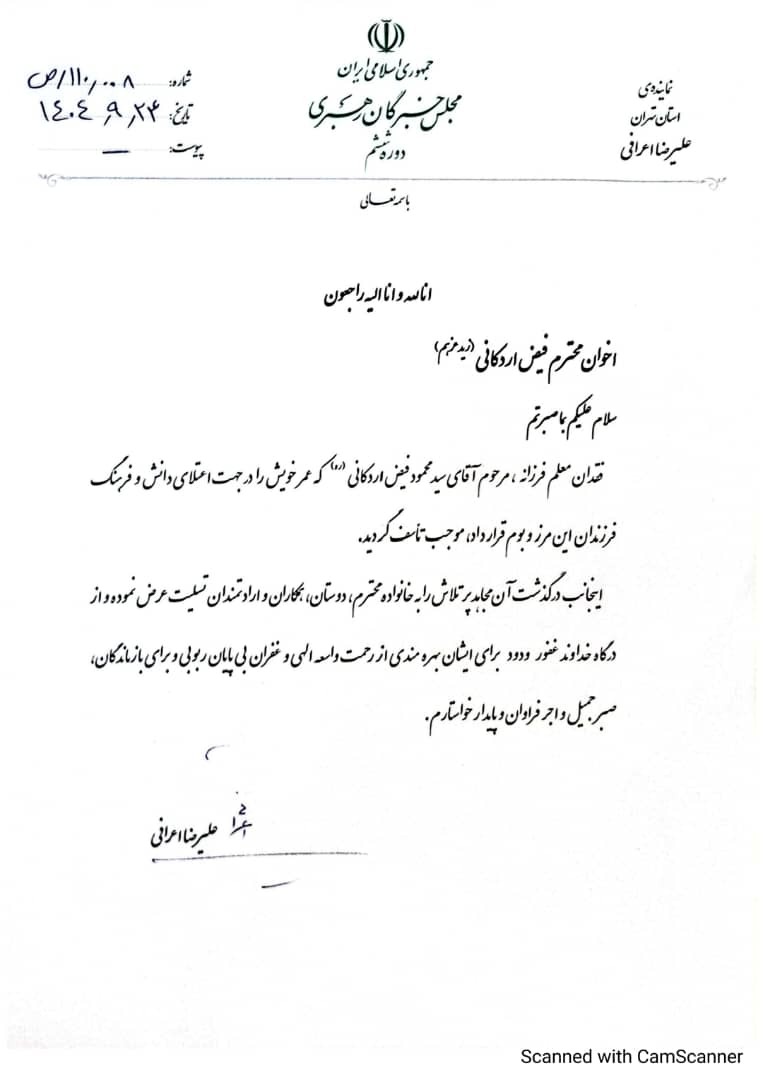 جمهوری اسلامی ایران
مجلس خبرگان رهبری
دوره ششم
نماینده‌ی
استان تهران
علیرضا اعرافی
شماره: ۱۱۰۰۰۸/ص
تاریخ: ۱۴۰۴٫۹٫۲۳
پیوست: —
باسمه تعالی
انا لله و انا الیه راجعون
اخوان محترم فیض اردکانی (زید عزهم)
سلام علیکم بما صبرتم
فقدان معلم فرزانه، مرحوم آقای سید محمود فیض اردکانی (ره) که عمر خویش را در جهت اعتلای دانش و فرهنگ
فرزندان این مرز و بوم قرار داد، موجب تأسف گردید.
اینجانب درگذشت آن مجاهد پرتلاش را به خانواده محترم، دوستان، همکاران و ارادتمندان تسلیت عرض نموده و از
درگاه خداوند غفور ودود برای ایشان بهره مندی از رحمت واسعه الهی و غفران بی پایان ربوبی و برای بازماندگان،
صبر جمیل و اجر فراوان و پایدار خواستارم.
علیرضا اعرافی
Scanned with CamScanner